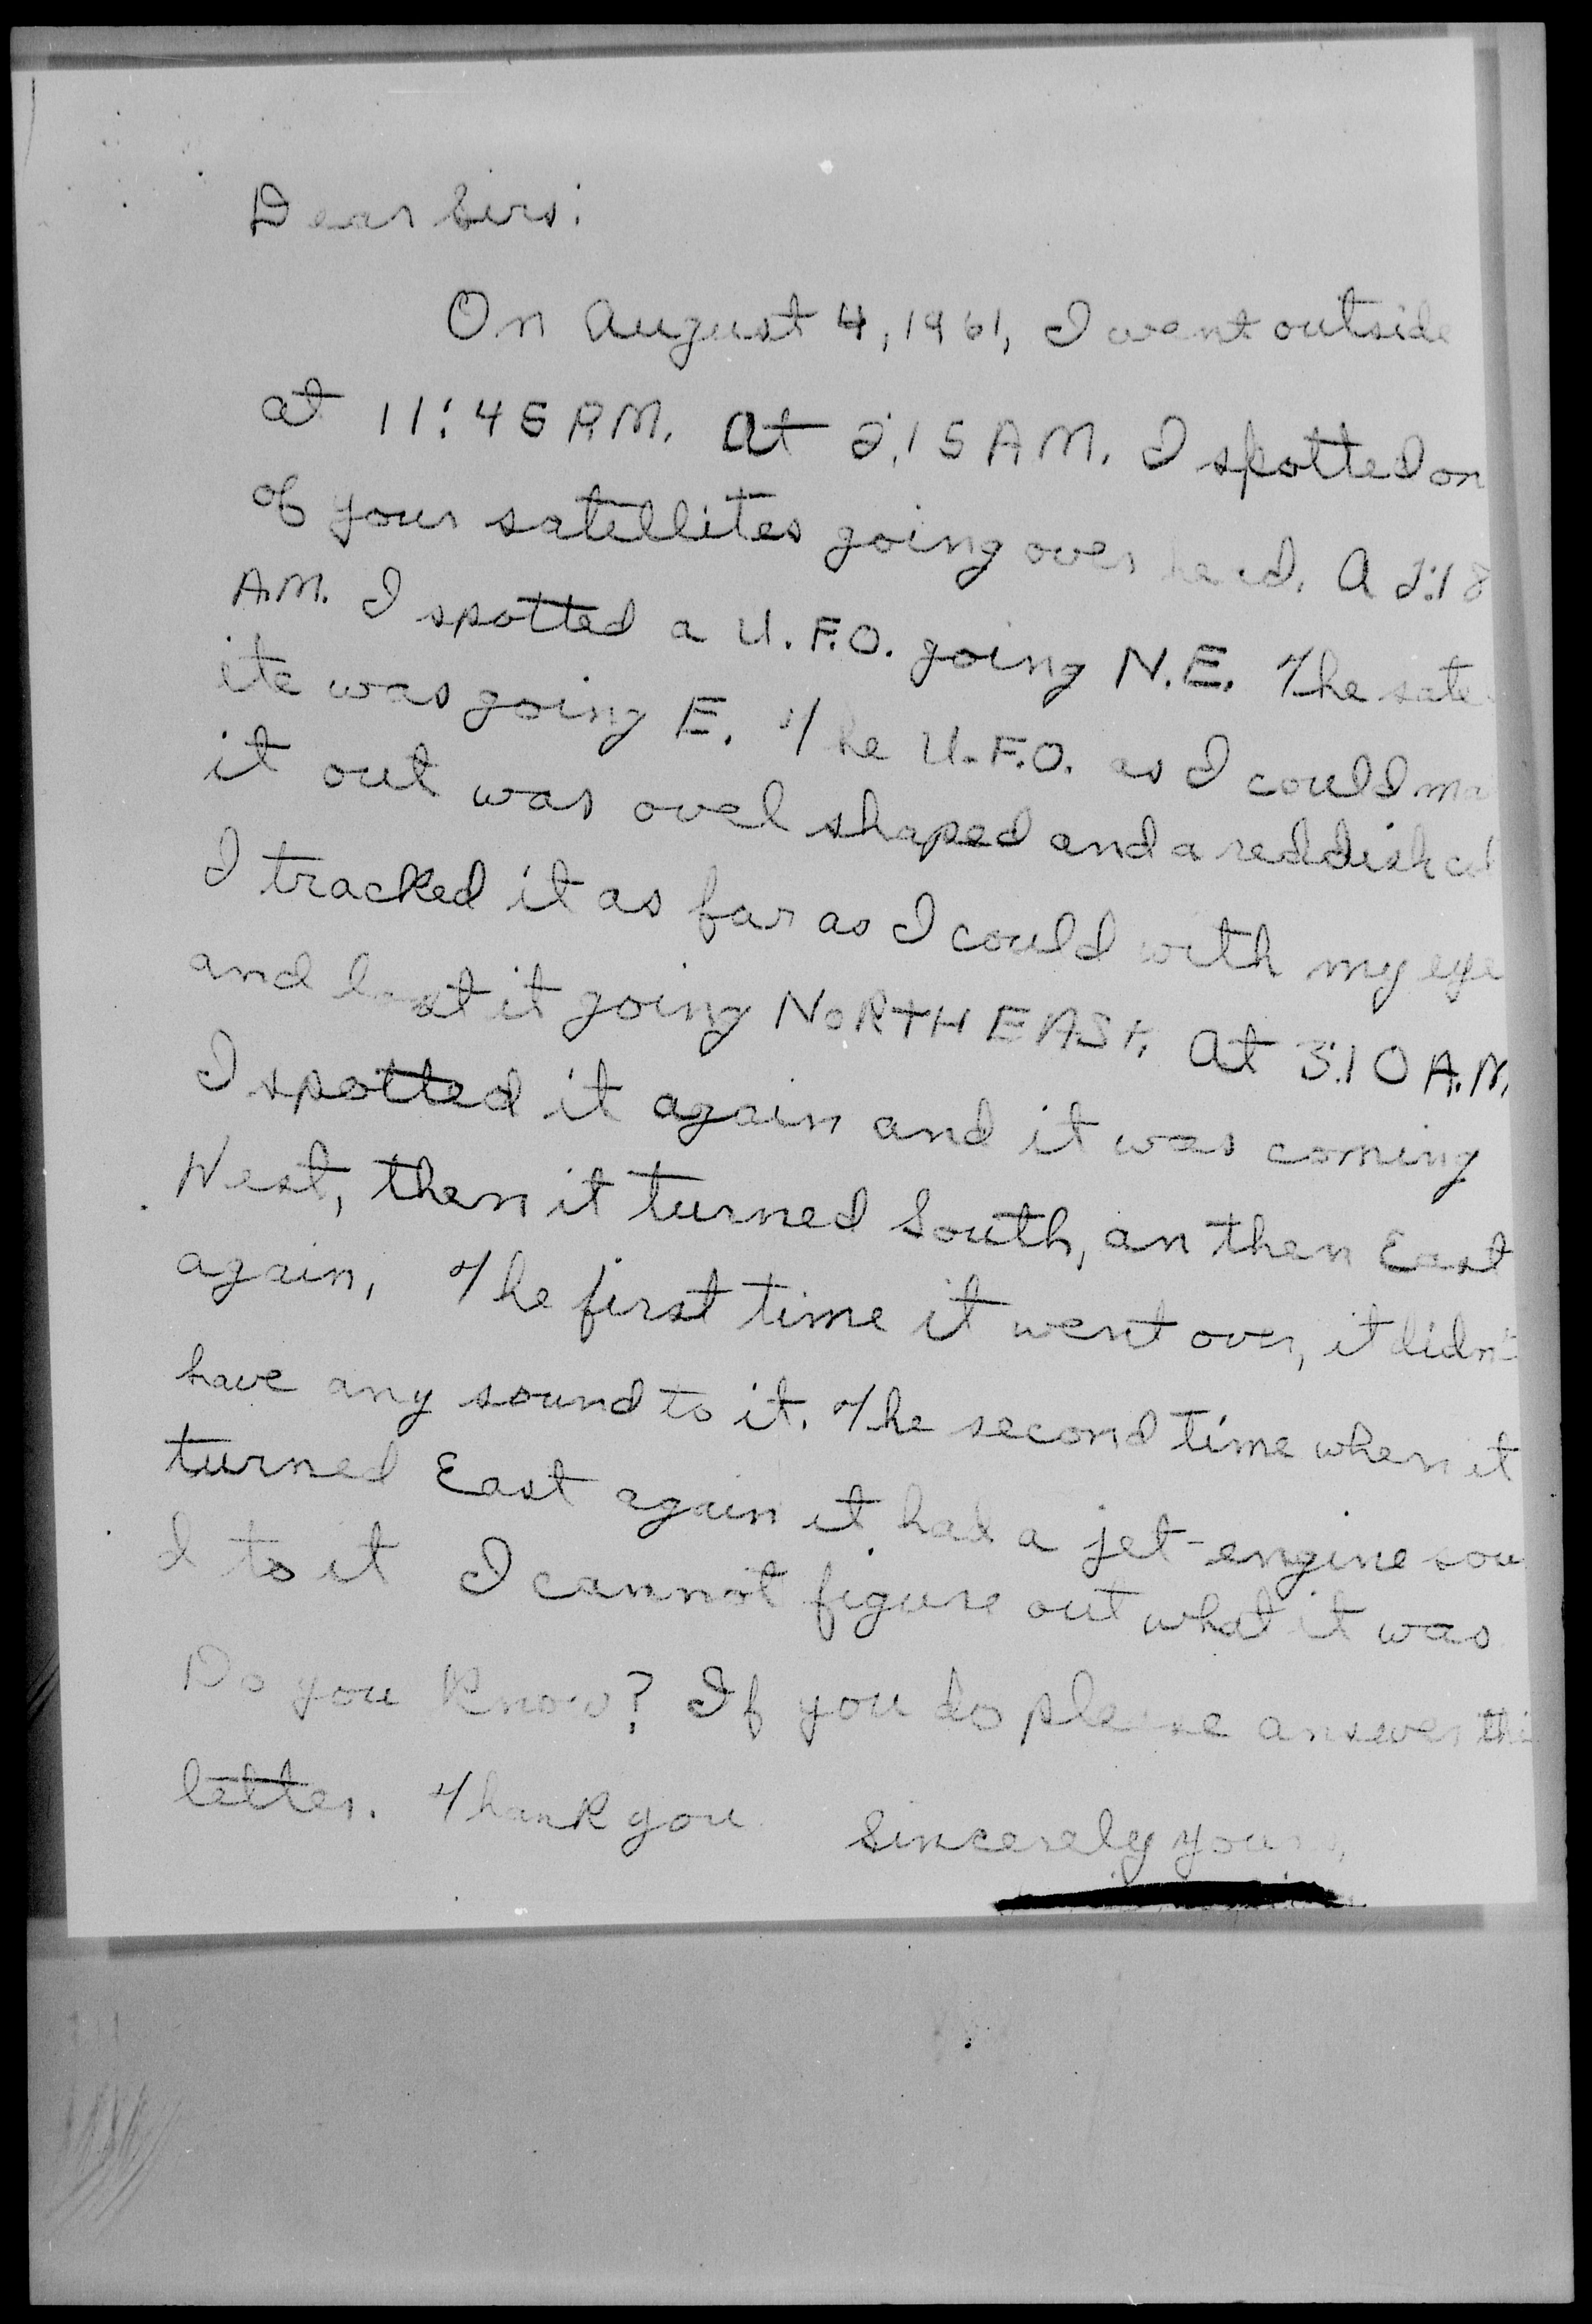 Dear Sirs:
On August 4, 1961, I went outside
at 11:45 P.M. At 2:15 A M. I spotted on
of your satellites going over head. A 2:18
A.M. I spotted a U.F.O. going N.E. The sate
ite was going E. The U.F.O. as I could ma
it out was ovel shaped and a reddish col
I tracked it as far as I could with my eye
and lost it going NORTH EAST. At 3:10 A.M.
I spotted it again and it was coming
West, then it turned South, an then East
again. The first time it went over, it didn't
have any sound to it. The second time when it
turned East again it had a jet-engine sou
d to it I cannot figure out what it was
Do you know? If you do please answer thi
letter. Thank you Sincerely yours,